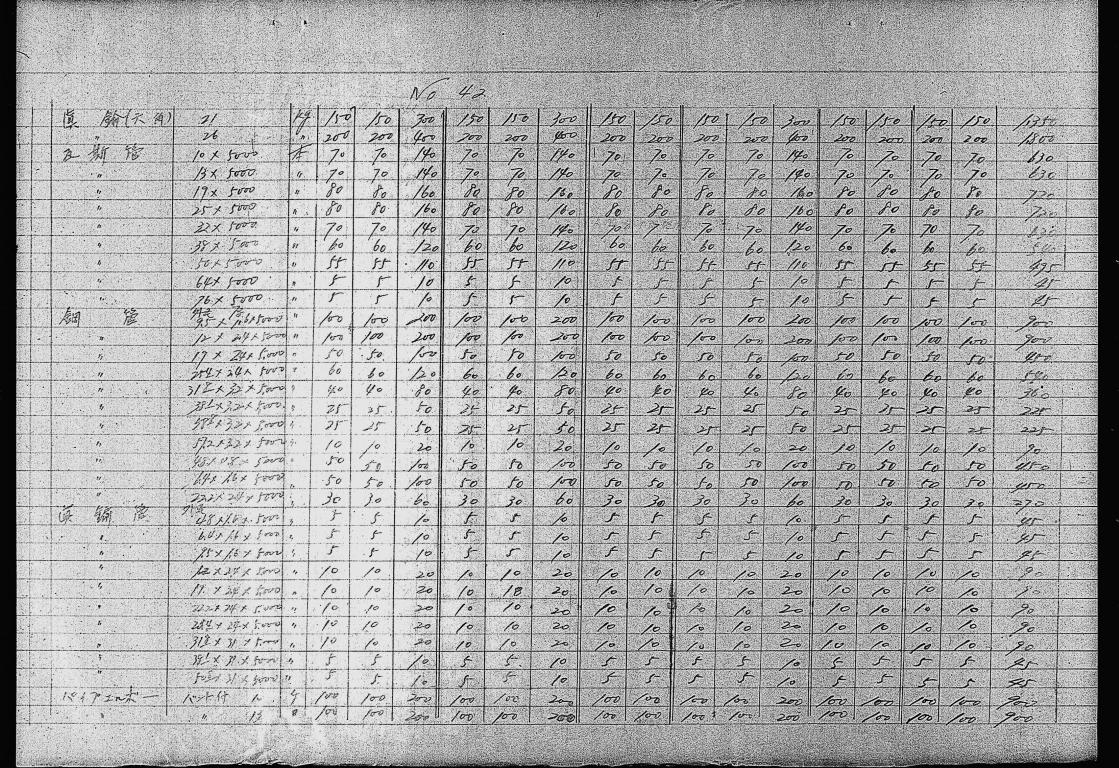 No 42
真鍮(六角) 21 kg 150 150 300 150 150 300 150 150 150 150 300 150 150 150 150 1350
〃 26 〃 200 200 400 200 200 400 200 200 200 200 400 200 200 200 200 1800
瓦斯管 10×5000 本 70 70 140 70 70 140 70 70 70 70 140 70 70 70 70 630
〃 13×5000 〃 70 70 140 70 70 140 70 70 70 70 140 70 70 70 70 630
〃 19×5000 〃 80 80 160 80 80 160 80 80 80 80 160 80 80 80 80 720
〃 25×5000 〃 80 80 160 80 80 160 80 80 80 80 160 80 80 80 80 720
〃 32×5000 〃 70 70 140 70 70 140 70 70 70 70 140 70 70 70 70 630
〃 38×5000 〃 60 60 120 60 60 120 60 60 60 60 120 60 60 60 60 540
〃 50×5000 〃 55 55 110 55 55 110 55 55 55 55 110 55 55 55 55 495
〃 64×5000 〃 5 5 10 5 5 10 5 5 5 5 10 5 5 5 5 45
〃 76×5000 〃 5 5 10 5 5 10 5 5 5 5 10 5 5 5 5 45
銅管 〃 100 100 200 100 100 200 100 100 100 100 200 100 100 100 100 900
〃 12×24×5000 〃 100 100 200 100 100 200 100 100 100 100 200 100 100 100 100 900
〃 19×24×5000 〃 50 50 100 50 50 100 50 50 50 50 100 50 50 50 50 450
〃 254×24×5000 〃 60 60 120 60 60 120 60 60 60 60 120 60 60 60 60 540
〃 ×32×5000 〃 40 40 80 40 40 80 40 40 40 40 80 40 40 40 40 360
〃 ×32×5000 〃 25 25 50 25 25 50 25 25 25 25 50 25 25 25 25 225
〃 ×32×5000 〃 25 25 50 25 25 50 25 25 25 25 50 25 25 25 25 225
〃 ×32×5000 〃 10 10 20 10 10 20 10 10 10 10 20 10 10 10 10 90
〃 48×08×5000 〃 50 50 100 50 50 100 50 50 50 50 100 50 50 50 50 450
〃 64×16×5000 〃 50 50 100 50 50 100 50 50 50 50 100 50 50 50 50 450
〃 222×24×5000 〃 30 30 60 30 30 60 30 30 30 30 60 30 30 30 30 270
真鍮管 外径 48×16×5000 〃 5 5 10 5 5 10 5 5 5 5 10 5 5 5 5 45
〃 64×16×5000 〃 5 5 10 5 5 10 5 5 5 5 10 5 5 5 5 45
〃 95×16×5000 〃 5 5 10 5 5 10 5 5 5 5 10 5 5 5 5 45
〃 12×24×5000 〃 10 10 20 10 10 20 10 10 10 10 20 10 10 10 10 90
〃 ×24×5000 〃 10 10 20 10 10 20 10 10 10 10 20 10 10 10 10 90
〃 222×24×5000 〃 10 10 20 10 10 20 10 10 10 10 20 10 10 10 10 90
〃 ×24×5000 〃 10 10 20 10 10 20 10 10 10 10 20 10 10 10 10 90
〃 ×31×5000 〃 10 10 20 10 10 20 10 10 10 10 20 10 10 10 10 90
〃 ×31×5000 〃 5 5 10 5 5 10 5 5 5 5 10 5 5 5 5 45
〃 ×31×5000 〃 5 5 10 5 5 10 5 5 5 5 10 5 5 5 5 45
パイプエルボー バンド付 ケ 100 100 200 100 100 200 100 100 100 100 200 100 100 100 100 900
〃 〃 13 〃 100 100 200 100 100 200 100 100 100 100 200 100 100 100 100 900